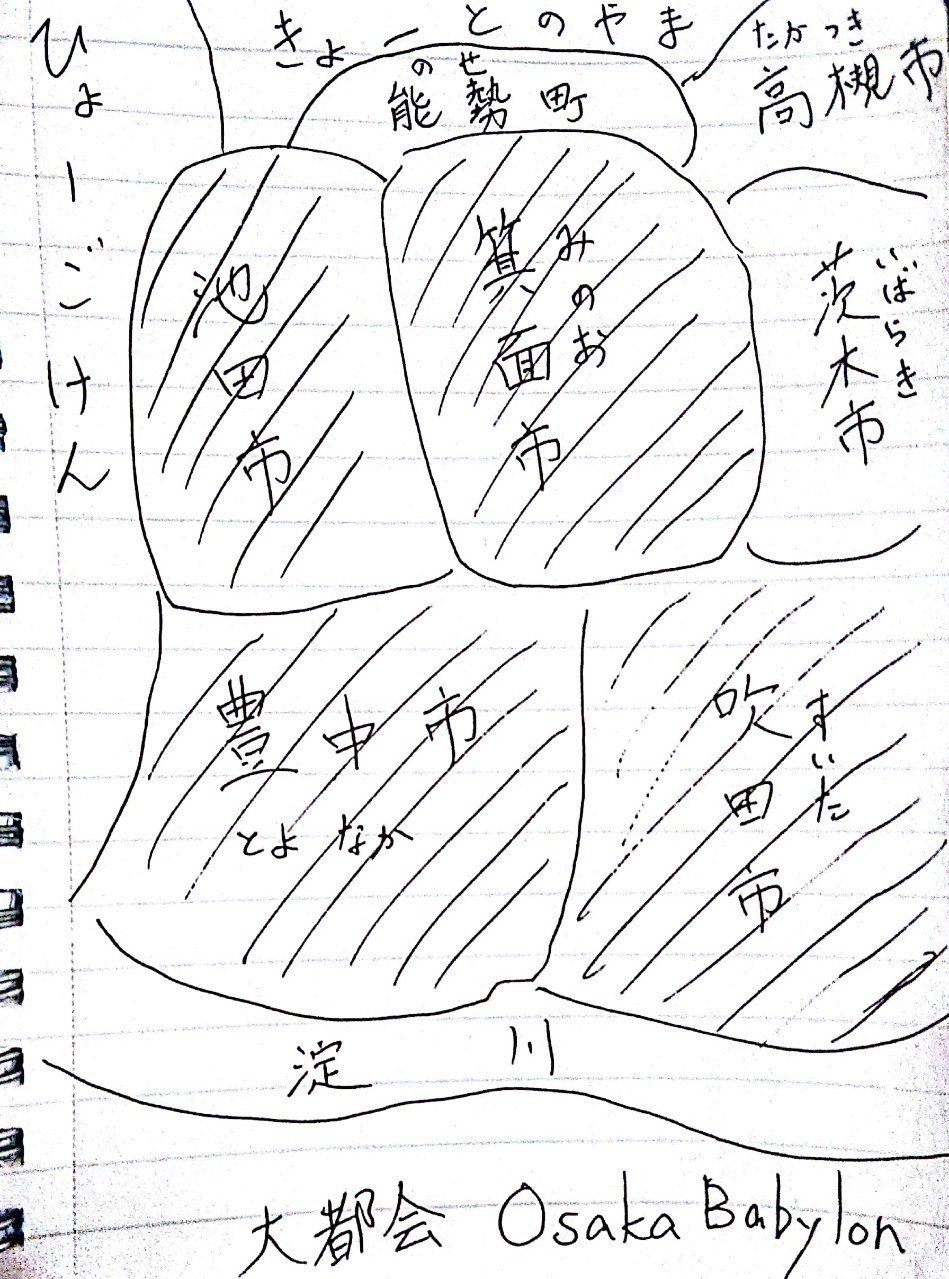 ひょーごけん
きょーとのやま
のせ
能勢町
たかつき
高槻市
池田市
みのお
箕面市
いばらき
茨木市
豊中市
とよなか
すいた
吹田市
淀川
大都会 Osaka Babylon